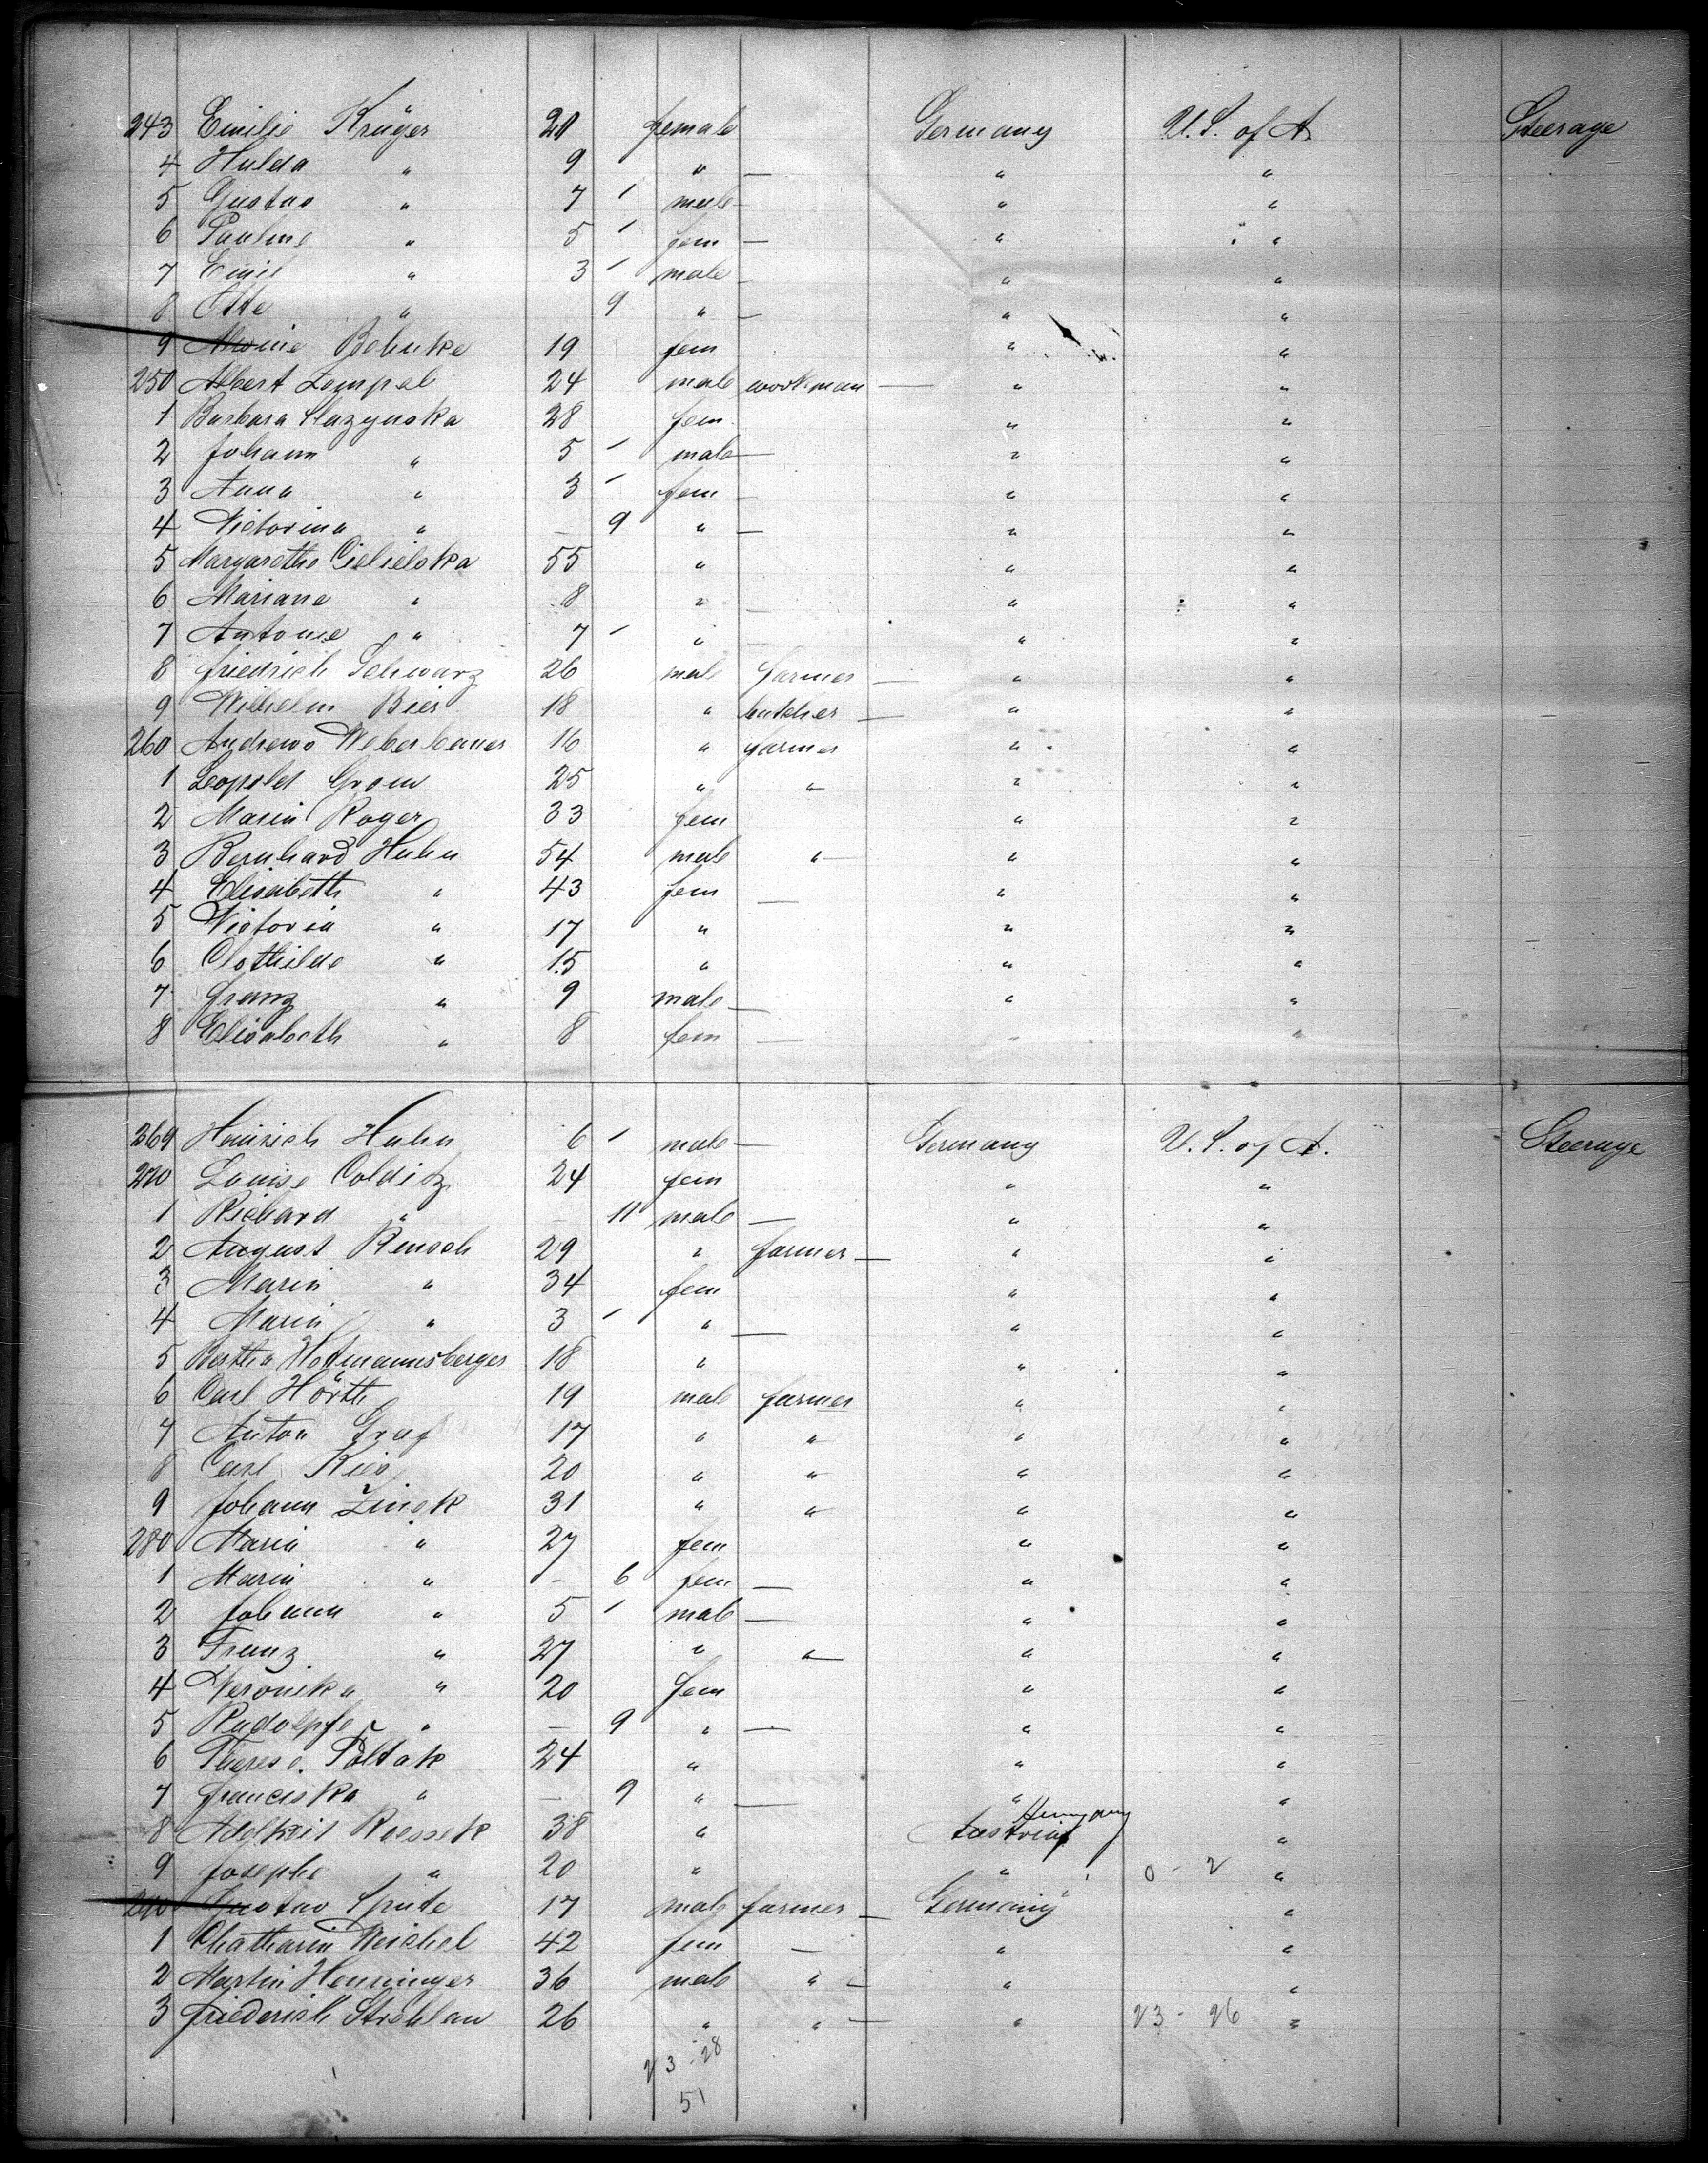 243 Emilie Krüger 20 female Germany U.S. of A. Steerage
4 Hulda " 9 " — " "
5 Gustav " 7 male — " "
6 Pauline " 5 fem — " "
7 Emil " 3 male — " "
8 Otto " 9 " — " "
9 Alwine Behnke 19 fem " "
250 Albert Zempel 24 male workman — " "
1 Barbara 28 fem " "
2 Johann " 5 male — " "
3 Anna " 3 fem — " "
4 Victorina " — 9 " — " "
5 Margarethe 55 " " "
6 Mariane " 8 " — " "
7 Antonie " 7 " — " "
8 Friedrich Schwarz 26 male farmer — " "
9 Wilhelm Bier 18 " butcher — " "
260 Andreas Weberbauer 16 " farmer " "
1 Leopold Grom 25 " " " "
2 Maria Roger 33 fem " "
3 Bernhard Huhn 54 male " " "
4 Elisabeth " 43 fem — " "
5 Victoria " 17 " " "
6 Clothilde " 15 " " "
7 Franz " 9 male — " "
8 Elisabeth " 8 fem — " "
269 Heinrich Huhn 6 male — Germany U.S. of A. Steerage
270 Louise Colditz 24 fem " "
1 Richard " — 11 male — " "
2 August Rensch 29 " farmer — " "
3 Maria " 34 fem " "
4 Maria " 3 " — " "
5 Bertha Hofmannsberger 18 " " "
6 Carl Hörth 19 male farmer " "
7 Anton Graf 17 " " " "
8 Carl Kies 20 " " " "
9 Johann Zinek 31 " " " "
280 Maria " 27 fem " "
1 Maria " — 6 fem — " "
2 Johann " 5 male — " "
3 Franz " 27 " " " "
4 Veronika " 20 fem " "
5 Rudolpfe " — 9 " — " "
6 Therese 24 " " "
7 Franciska " — 9 " — " "
8 38 " Austria Hungary "
9 Josephe " 20 " " 0 - 2 "
290 Gustav Spude 17 male farmer — Germany "
1 Chatharin Weichel 42 fem — " "
2 Martin Henninger 36 male " — " "
3 Friederich Strehlau 26 " " — " 23 - 26 "
23 - 28
51